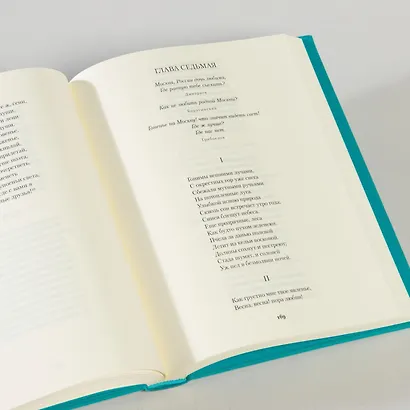 ж, сени,
ГЛАВА СЕДЬМАЯ
Москва, России дочь любима,
Где равную тебе сыскать?
Дмитриев
Как не любить родной Москвы?
Баратынский
Гоненье на Москву! что значит видеть свет!
Где ж лучше?
Где нас нет.
Грибоедов
I
Гонимы вешними лучами,
С окрестных гор уже снега
Сбежали мутными ручьями
На потопленные луга.
Улыбкой ясною природа
Сквозь сон встречает утро года;
Синея блещут небеса.
Еще прозрачные, леса
Как будто пухом зеленеют.
Пчела за данью полевой
Летит из кельи восковой.
Долины сохнут и пестреют;
Стада шумят, и соловей
Уж пел в безмолвии ночей.
II
Как грустно мне твое явленье,
Весна, весна! пора любви!
169